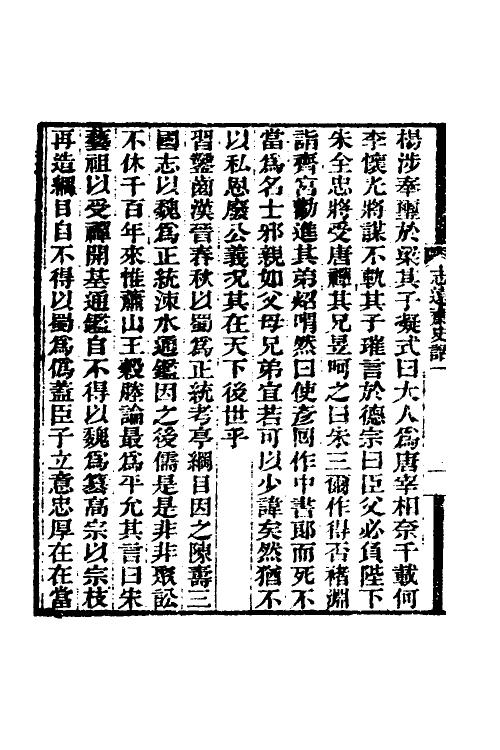 志遠齋史話一
楊涉奉璽於梁其子凝式曰大人爲唐宰相奈千載何
李懷光將謀不軌其子璀言於德宗曰臣父必負陛下
朱全忠將受唐禪其兄昱呵之曰朱三爾作得否褚淵
詣齊宮勸進其弟炤喟然曰使彥回作中書郎而死不
當爲名士邪親如父母兄弟宜若可以少諱矣然猶不
以私恩廢公義况其在天下後世乎
習鑿齒漢晉春秋以蜀爲正統考亭綱目因之陳壽三
國志以魏爲正統涑水通鑑因之後儒是是非非聚訟
不休千百年來惟蕭山王穀塍論最爲平允其言曰朱
藝祖以受禪開基通鑑自不得以魏爲篡高宗以宗枝
再造綱目自不得以蜀爲僞蓋臣子立意忠厚在在當